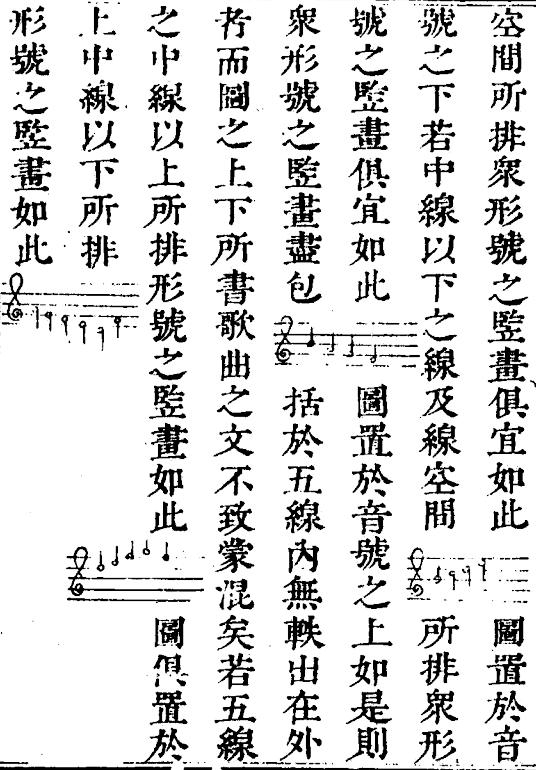 空間所排衆形號之竪畫俱宜如此 圖置於音
號之下若中線以下之線及線空間 所排衆形
號之竪畫俱宜如此 圖置於音號之上如是則
衆形號之竪畫盡包 括於五線內無軼出在外
者而圖之上下所書歌曲之文不致蒙混矣若五線
之中線以上所排形號之竪畫如此 圖俱置於
上中線以下所排
形號之竪畫如此